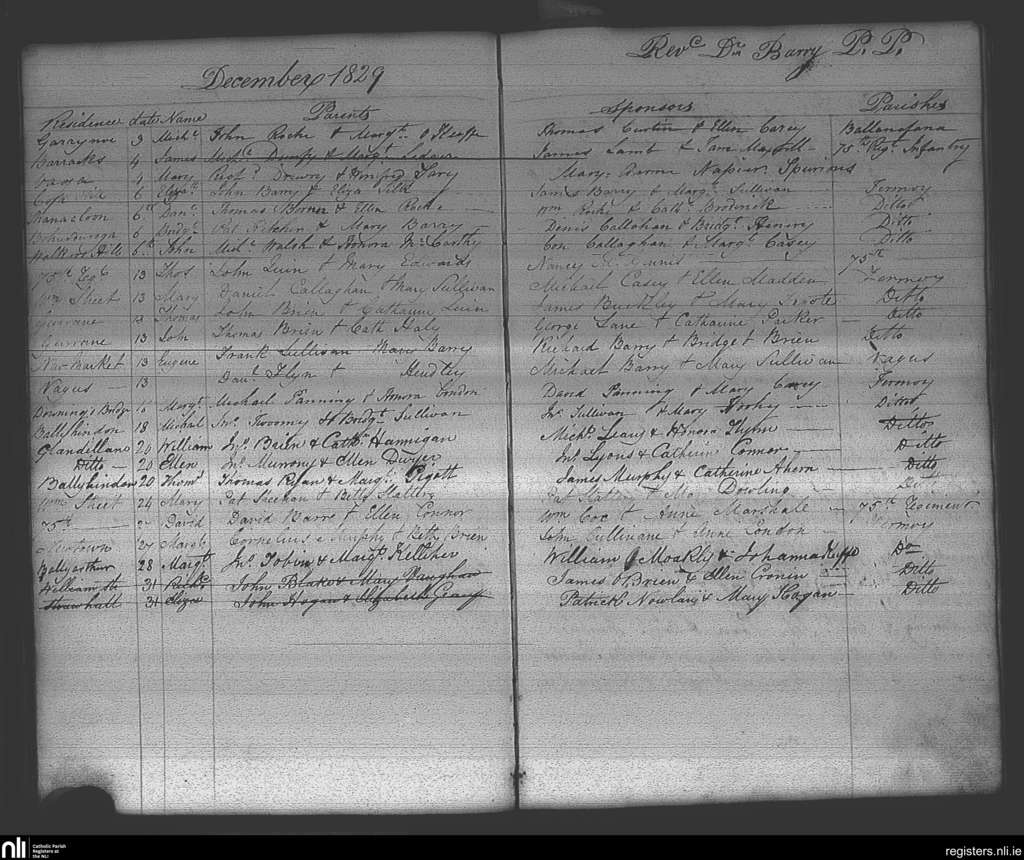 December 1829
Revd Dr Barry P.P.
Residence date Name Parents Sponsors Parishes
Garrynoe 3 Michl John Roche & Margt O Keeffe Thomas Curtin & Ellen Carey
Barracks 4 James Michl Dunfy & Margt James Lamb & 75th Regt Infantry
4 Mary & Mary Napier Spurious
6 Elizath John Barry & Eliza James Barry & Margt Sullivan Fermoy
6th Danl Thomas & Ellen Roche Wm Roche & Cathe Broderick Ditto
6 Bridgt Pat & Mary Barry Denis Callahan & Bridgt Ditto
Walkers Hill 6th John Michl Walsh & Honora McCarthy Con Callaghan & Margt Casey Ditto
75th Regt 13 Thos John Quin & Mary Edwards Nancy 75th
Wm Street 13 Mary Daniel Callaghan & Mary Sullivan Michael Casey & Ellen Madden Fermoy
Gurrane 13 Thomas John Brien & Catharine Quin James Buckley & Mary Ditto
Gurrane 13 John Thomas Brien & Cath Haly George Lane & Catharine Parker Ditto
Newmarket 13 Eugene Frank Sullivan Mary Barry Richard Barry & Bridget Brien Ditto
Nagus 13 Danl Flynn & Michael Barry & Mary Sullivan Nagus
Downing's Bridge 16 Margt Michael Panning & Honora Condon David Panning & Mary Carey Fermoy
Ballyhindon 18 Michael Jno Twoomy & Bridgt Sullivan Jno Sullivan & Mary Ditto
Glandillane 20 William Jno Brien & Cathe Hannigan Michl Leary & Honora Flynn Ditto
Ditto 20 Ellen Jno Murrony & Ellen Dwyer Jno Lyons & Catherine Connor Ditto
Ballyhindon 20 Thoms Thomas Ryan & Margt Pigott James Murphy & Catherine Ahern Ditto
Wm Street 24 Mary Pat Sheehan & Betty Slattery Pat Slattery & Dowling Ditto
75th 27 David David Barry & Ellen Connor Wm Cox & Anne Marshale 75th Regiment
27 Margt Cornelius Murphy & Betty Brien John Cullinane & Anne Condon Fermoy
Ballyarthur 28 Margt Jno Tobin & Margt Kelliher William & Johanna Do
William St 31 Richd John Blake & Mary Vaughan James O'Brien & Ellen Cronin Ditto
31 Eliza John Hogan & Elizabeth Patrick Nowlan & Mary Hogan Ditto
nli
Catholic Parish
Registers at
the NLI
registers.nli.ie